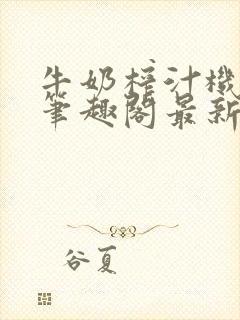 牛奶榨汁機
筆趣閣最新
谷夏